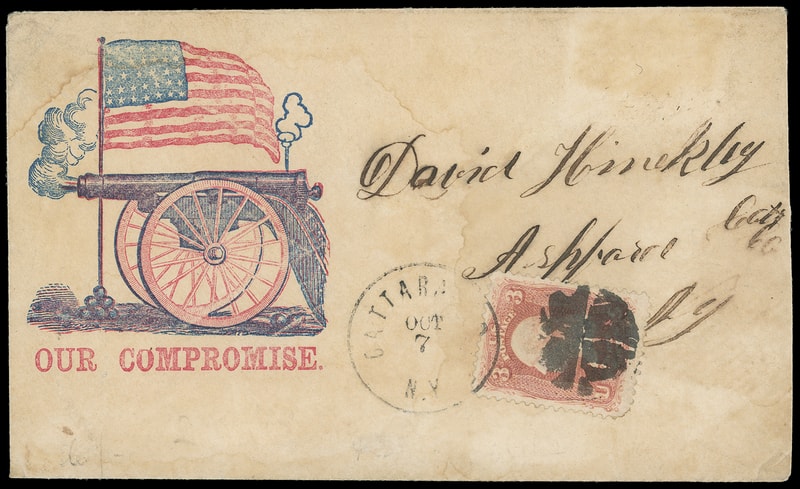 OUR COMPROMISE.
David Hinckley
Ashford
Catt
Co
NY
CATTARA
OCT
7
N.Y
3
3
U